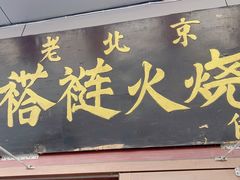 老北京
褡裢火烧